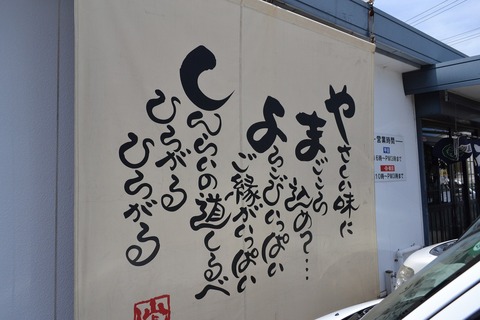 やさしい味に
まごころ
込めて…
よろこびいっぱい
ご縁がいっぱい
しんらいの道しるべ
ひろがる
ひろがる
営業時間